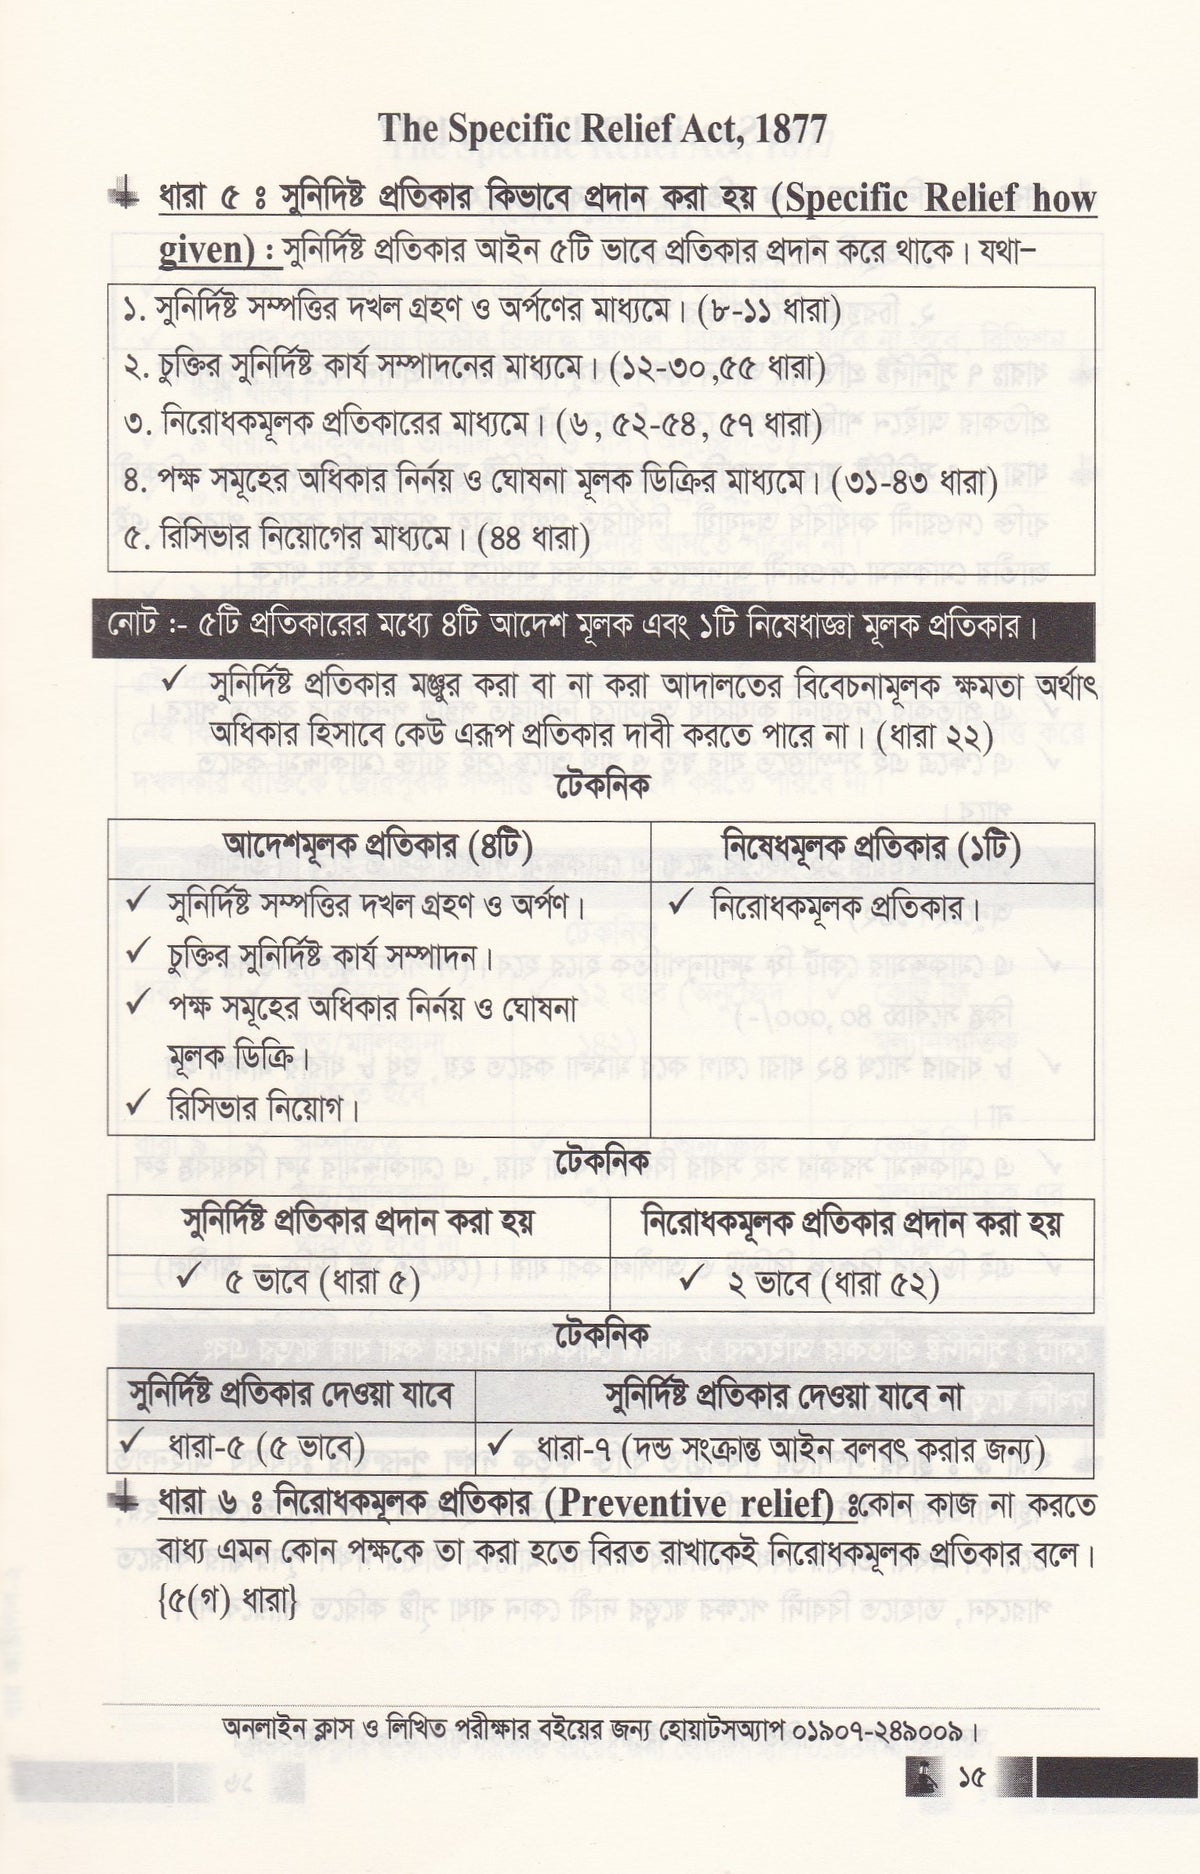 The Specific Relief Act, 1877
ধারা ৫ ঃ সুনির্দিষ্ট প্রতিকার কিভাবে প্রদান করা হয় (Specific Relief how
given) : সুনির্দিষ্ট প্রতিকার আইন ৫টি ভাবে প্রতিকার প্রদান করে থাকে। যথা–
১. সুনির্দিষ্ট সম্পত্তির দখল গ্রহণ ও অর্পণের মাধ্যমে। (৮-১১ ধারা)
২. চুক্তির সুনির্দিষ্ট কার্য সম্পাদনের মাধ্যমে। (১২-৩০,৫৫ ধারা)
৩. নিরোধকমূলক প্রতিকারের মাধ্যমে। (৬, ৫২-৫৪, ৫৭ ধারা)
৪. পক্ষ সমূহের অধিকার নির্নয় ও ঘোষনা মূলক ডিক্রির মাধ্যমে। (৩১-৪৩ ধারা)
৫. রিসিভার নিয়োগের মাধ্যমে। (৪৪ ধারা)
নোট :- ৫টি প্রতিকারের মধ্যে ৪টি আদেশ মূলক এবং ১টি নিষেধাজ্ঞা মূলক প্রতিকার।
✓ সুনির্দিষ্ট প্রতিকার মঞ্জুর করা বা না করা আদালতের বিবেচনামূলক ক্ষমতা অর্থাৎ
অধিকার হিসাবে কেউ এরূপ প্রতিকার দাবী করতে পারে না। (ধারা ২২)
টেকনিক
আদেশমূলক প্রতিকার (৪টি) নিষেধমূলক প্রতিকার (১টি)
✓ সুনির্দিষ্ট সম্পত্তির দখল গ্রহণ ও অর্পণ। ✓ নিরোধকমূলক প্রতিকার।
✓ চুক্তির সুনির্দিষ্ট কার্য সম্পাদন।
✓ পক্ষ সমূহের অধিকার নির্নয় ও ঘোষনা
মূলক ডিক্রি।
✓ রিসিভার নিয়োগ।
টেকনিক
সুনির্দিষ্ট প্রতিকার প্রদান করা হয় নিরোধকমূলক প্রতিকার প্রদান করা হয়
✓ ৫ ভাবে (ধারা ৫) ✓ ২ ভাবে (ধারা ৫২)
টেকনিক
সুনির্দিষ্ট প্রতিকার দেওয়া যাবে সুনির্দিষ্ট প্রতিকার দেওয়া যাবে না
✓ ধারা-৫ (৫ ভাবে) ✓ ধারা-৭ (দন্ড সংক্রান্ত আইন বলবৎ করার জন্য)
ধারা ৬ ঃ নিরোধকমূলক প্রতিকার (Preventive relief) ঃকোন কাজ না করতে
বাধ্য এমন কোন পক্ষকে তা করা হতে বিরত রাখাকেই নিরোধকমূলক প্রতিকার বলে।
{৫(গ) ধারা}
অনলাইন ক্লাস ও লিখিত পরীক্ষার বইয়ের জন্য হোয়াটসঅ্যাপ ০১৯০৭-২৪৯০০৯।
১৫